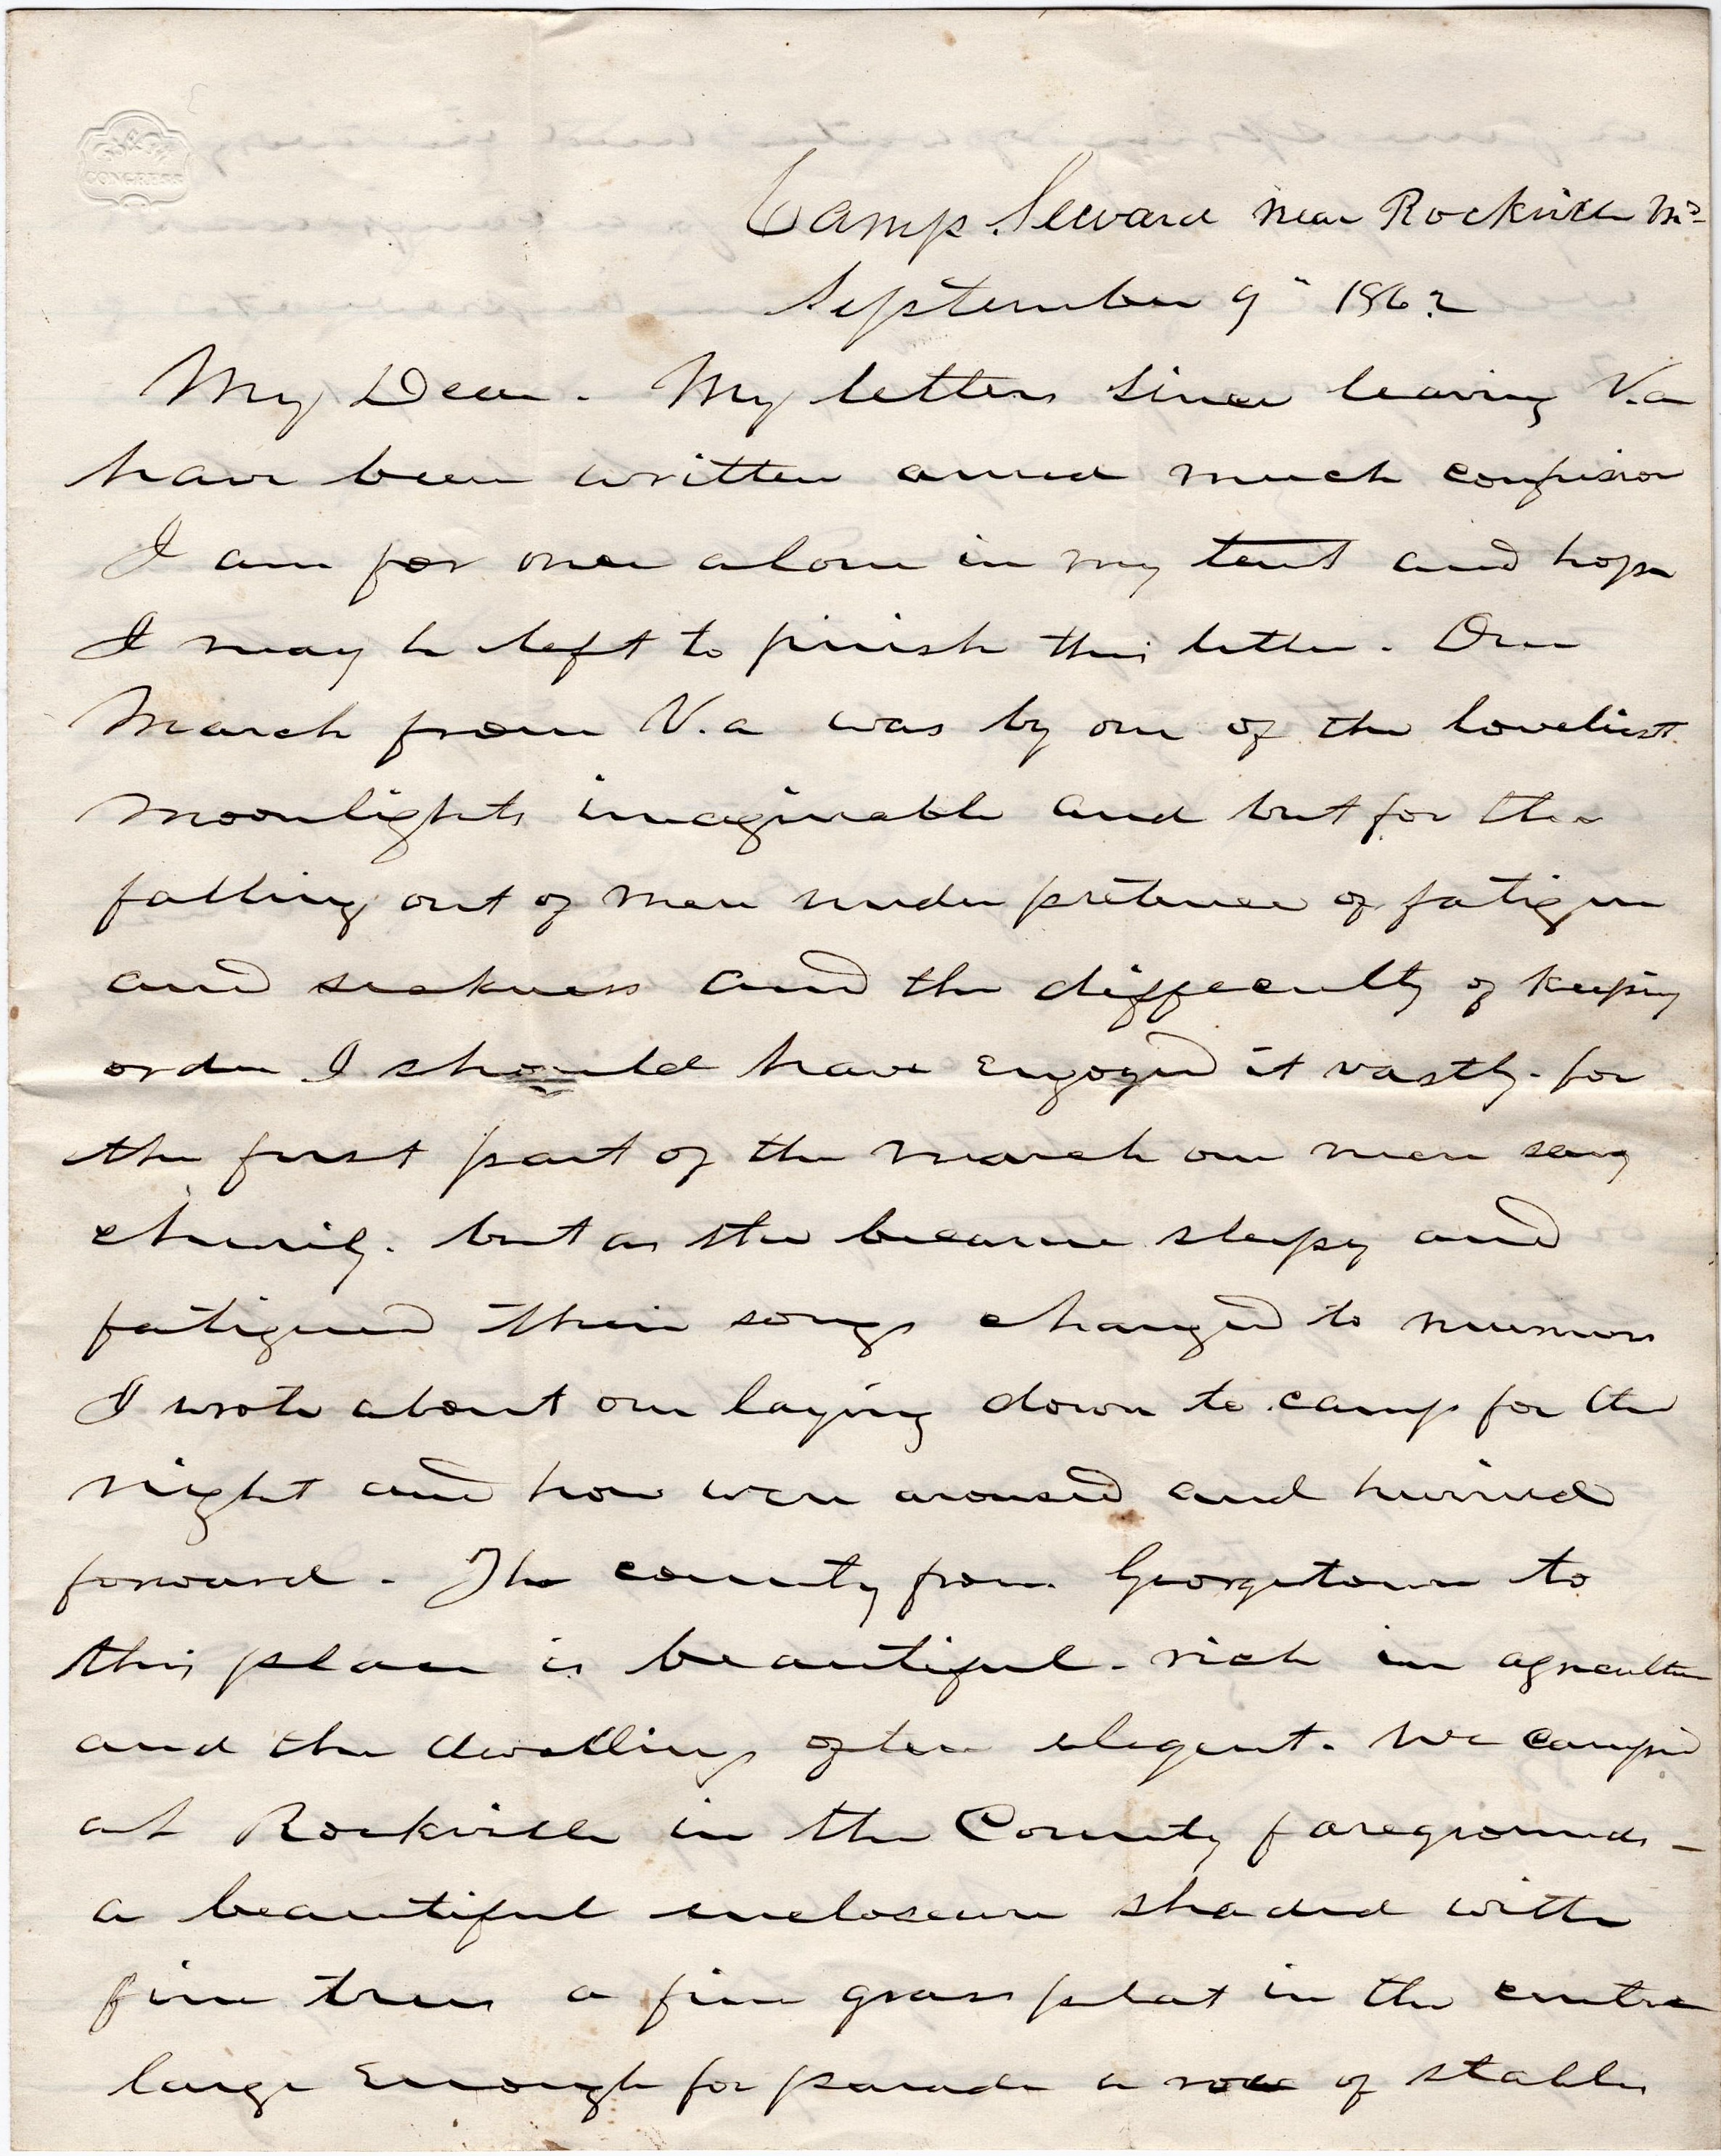 CONGRESS
Camp Seward near Rockville Md
September 9" 1862
My Dear. My letters since leaving V.a
have been written amid much confusion
I am for once alone in my tent and hope
I may be left to finish this letter. Our
March from V.a was by one of the loveliest
moonlights imaginable and but for the
falling out of men under pretence of fatigue
and sickness and the difficulty of keeping
order I should have enjoyed it vastly. for
the first part of the march our men sang
cheerily. but as the became sleepy and
fatigued their songs changed to murmurs
I wrote about our laying down to camp for the
night and how were aroused and hurried
forward. The country from Georgetown to
this place is beautiful. rich in agriculture
and the dwellings often elegent. We camped
at Rockville in the County faregrounds -
a beautiful encloseure shaded with
fine trees a fine grass plat in the centre
large enough for parade a row of stables